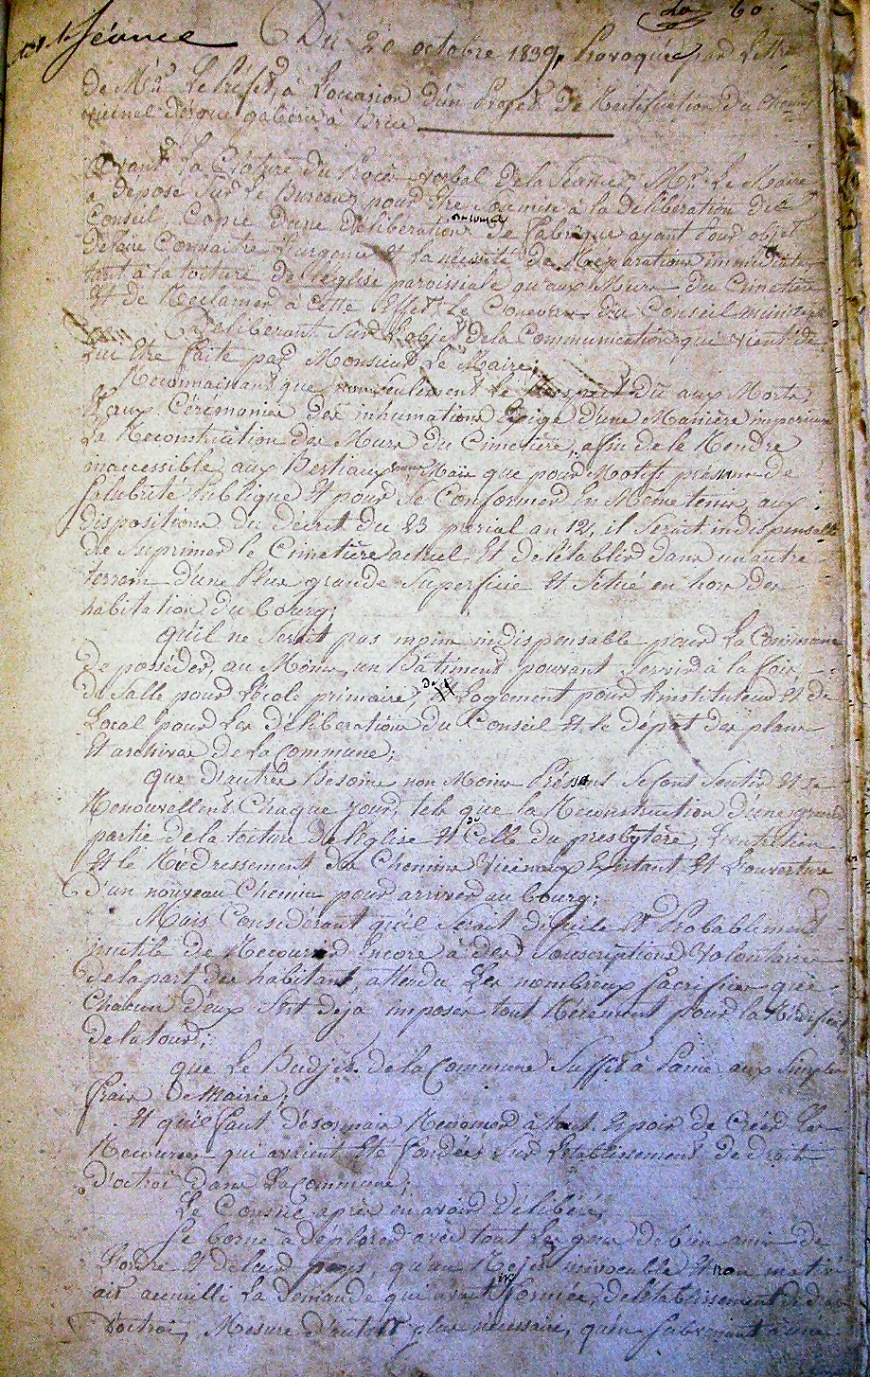 Séance Du 20 octobre 1839, Provoquée par Lettre
de Mr Le Préfet, à L'occasion d'un Projet De Rectification du Chemin
vicinal d'Ergué gabéric à Briec
Avant La Cloture du Procès verbal de la Séance, Mr Le Maire
a déposé Sur Le Bureau, pour être Soumise à la Délibération du
Conseil Copie d'une délibération de fabrique ayant pour objet
de faire Connaitre L'urgence et la nécessité de Réparations immédiates
tant à la toiture de l'église paroissiale qu'aux Murs du Cimetière
Et de Réclamer à Cette Effet Le Concours du Conseil municipal
Délibérant Sur L'objet de la Communication qui vient de
Lui être faite par Monsieur Le Maire;
Reconnaissant que non Seulement Le Respect dû aux Morts
Et aux Cérémonies des inhumations Exige d'une Manière impérieuse
La Reconstruction des Murs du Cimetière, afin de le Rendre
inaccessible aux Bestiaux Mais que pour Motifs de
Salubrité Publique Et pour Se Conformer En Même tems, aux
dispositions du Décret du 23 prérial an 12, il Serait indispensable
de Suprimer le Cimetière actuel Et de l'établir dans un autre
terrein d'une Plus grande Superficie Et Situé en hors des
habitation du bourg;
qu'il ne Serait pas moins indispensable pour La Commune
de posséder au Moins un Bâtiment pouvant Servir à la fois,
de Salle pour L'école primaire, de Logement pour l'instituteur Et de
Local pour Les délibérations du Conseil Et le dépôt des plans
Et archives de la Commune;
que d'autres Besoins non Moins Présens Se font Sentir Et Se
Renouvellent Chaque jour, tels que la Reconstruction d'une grande
partie de la toiture de l'Eglise Et de Celle du presbytère, L'entretien
Et le Rédressement des Chemins Vicinaux Existant Et L'ouverture
d'un nouveau Chemin pour arriver au bourg;
Mais Considérant qu'il Serait dificile Et Probablement
inutile de Recourir Encore à des Souscriptions Volontaires
de la part des habitant, attendu Les nombreux Sacrifices que
Chacun d'eux S'est déjà imposés tout Récement pour la Rédifice
de la tour;
que Le Budjet de la Commune Suffit à Peine aux Simples
frais de Mairie;
Et qu'il faut désormais Renoncer à tout Espoir de Créer Les
Ressources qui avaient Eté fondées Sur L'etablissement de droits
d'octroi dans La Commune;
Le Conseil après en avoir Délibéré,
Se borne à déplorer avec tout Les gens de bien amis de
L'ordre Et de leur pays, qu'un Rejet irrévocable Et non motivé
ait accueilli La Demande qui avait formée, de l'établissement de droit
D'octroi, Mesure d'autant plus nécessaire, qu'en Subvenant à une